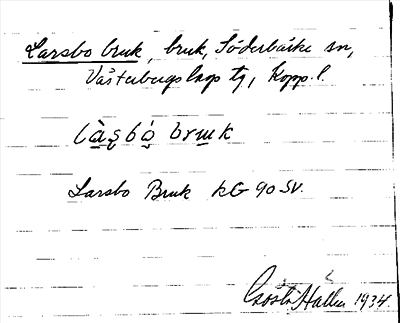 Larsbo bruk, bruk, Söderbärke sn,
Västerbergslags tg, Kopp. l.
làṣbó̤ bruk
Larsbo Bruk KG 90 SV.
Gösta Hallén 1934.